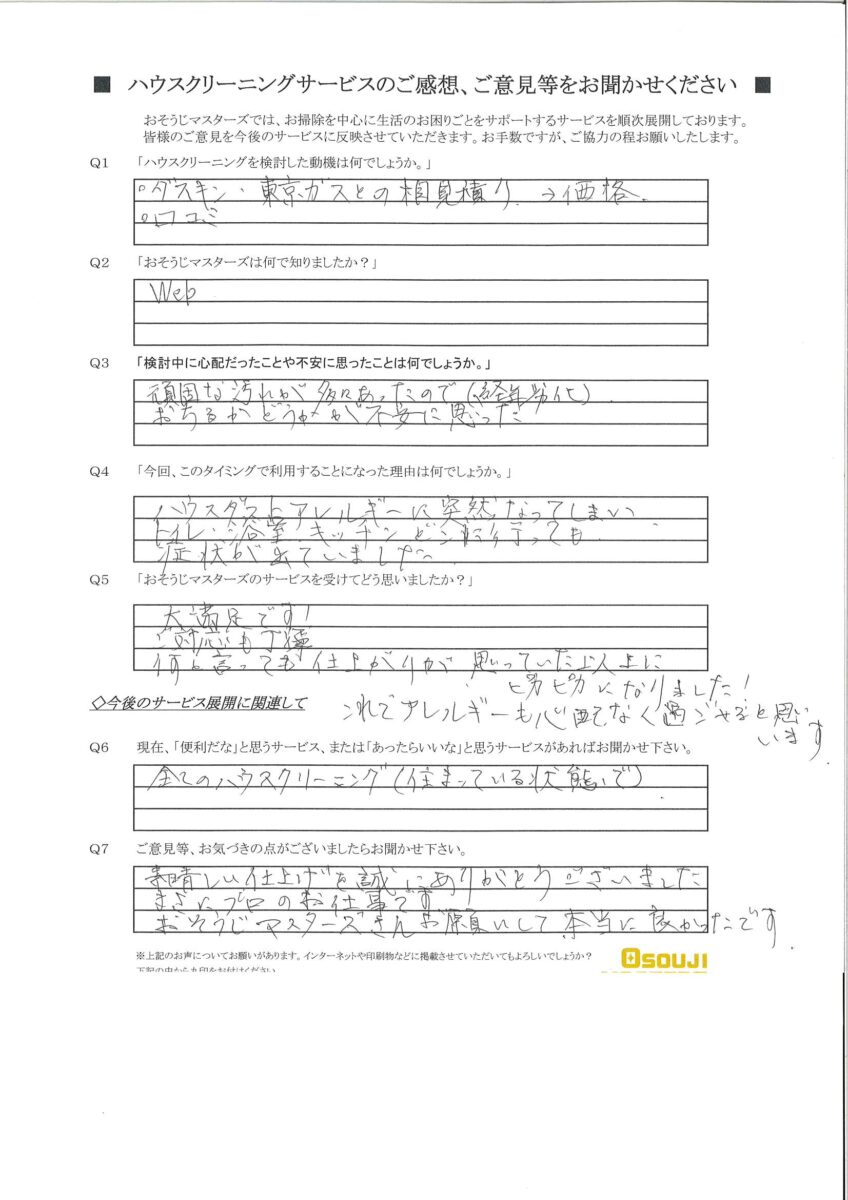 ■ ハウスクリーニングサービスのご感想、ご意見等をお聞かせください ■
おそうじマスターズでは、お掃除を中心に生活のお困りごとをサポートするサービスを順次展開しております。
皆様のご意見を今後のサービスに反映させていただきます。お手数ですが、ご協力の程お願いしたします。
Q1 「ハウスクリーニングを検討した動機は何でしょうか。」
○ダスキン・東京ガスとの相見積り→価格.
○口コミ
Q2 「おそうじマスターズは何で知りましたか？」
Web
Q3 「検討中に心配だったことや不安に思ったことは何でしょうか。」
頑固な汚れが多々あったので(経年劣化)
おちるかどうかが不安に思った
Q4 「今回、このタイミングで利用することになった理由は何でしょうか。」
ハウスダストアレルギーに突然なってしまい
トイレ・浴室・キッチンどこに行っても
症状が出ていました.
Q5 「おそうじマスターズのサービスを受けてどう思いましたか？」
大満足です！
ご対応も丁寧
何と言っても仕上がりが思っていた以上に
ピカピカになりました！
◇今後のサービス展開に関連して
これでアレルギーも心配なく過ごせると思
います.
Q6 現在、「便利だな」と思うサービス、または「あったらいいな」と思うサービスがあればお聞かせ下さい。
全てのハウスクリーニング(住まっている状態で)
Q7 ご意見等、お気づきの点がございましたらお聞かせ下さい。
素晴しい仕上げを誠にありがとうございました
まさにプロのお仕事です
おそうじマスターズさんお願いして本当に良かったです.
※上記のお声についてお願いがあります。インターネットや印刷物などに掲載させていただいてもよろしいでしょうか？
OSOUJI
下記の中から丸印をお付けください